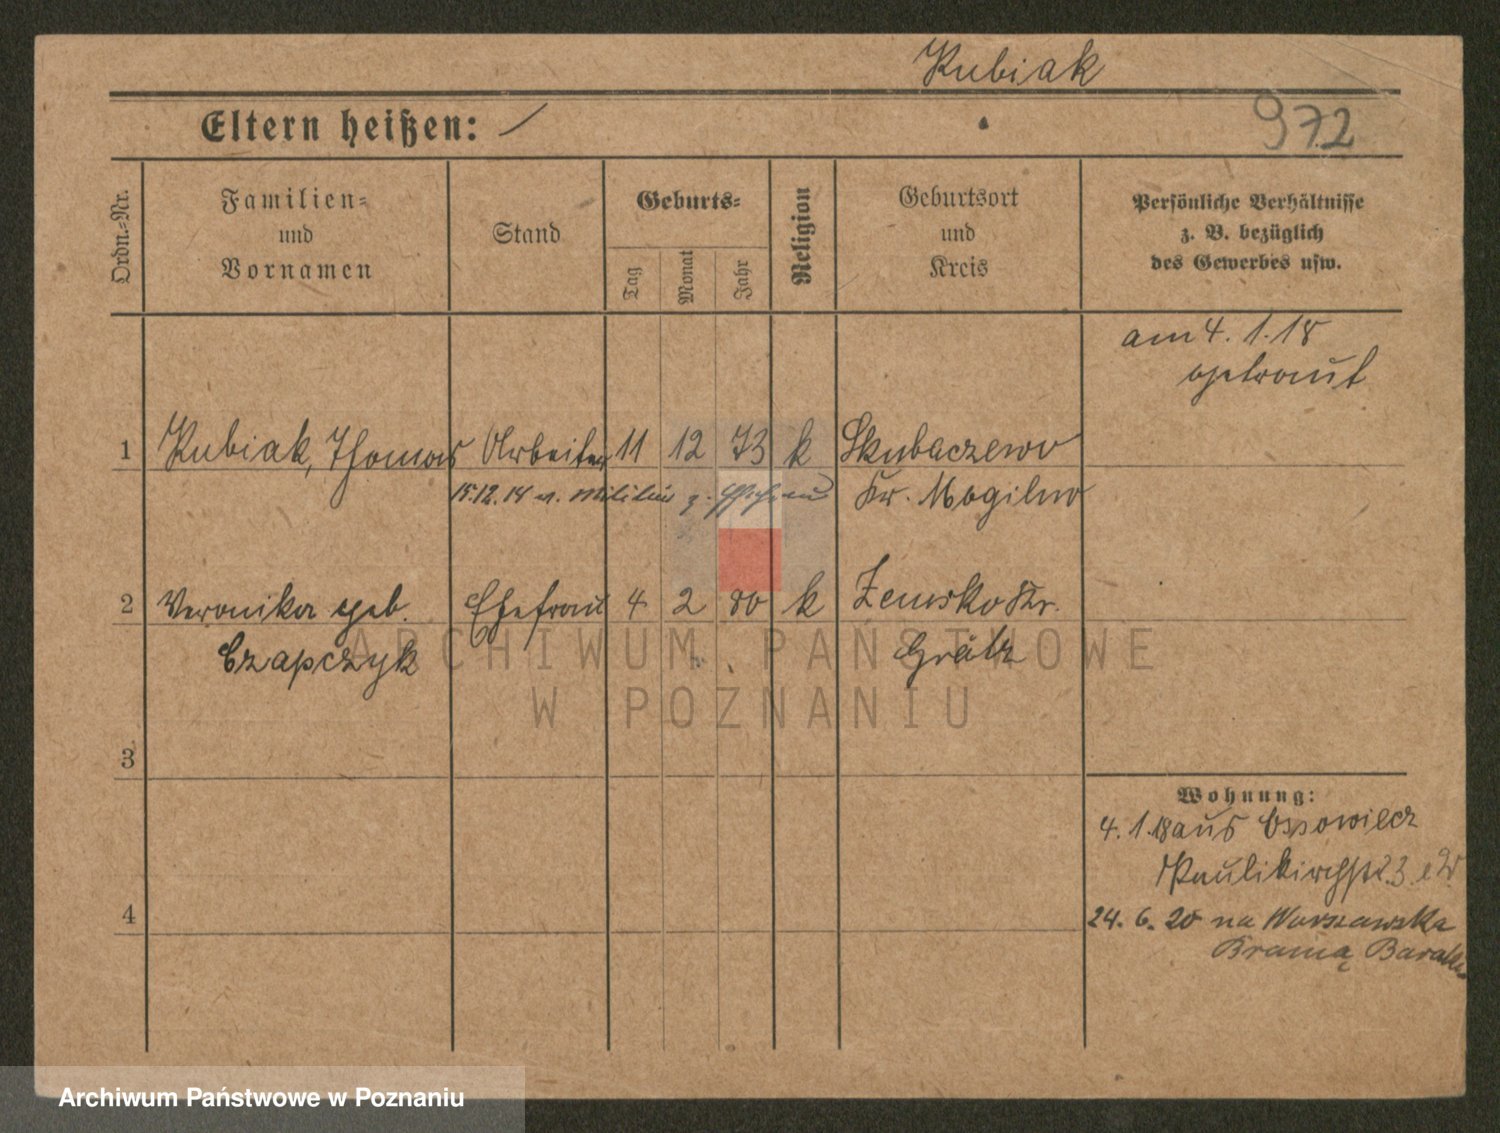 Kubiak
Eltern heißen:
972
Ordn.-Nr.
Familien-
und
Vornamen
Stand
Geburts-
Tag
Monat
Jahr
Religion
Geburtsort
und
Kreis
Persönliche Verhältnisse
z. B. bezüglich
des Gewerbes usw.
am 4. 1. 18
getraut
1 Kubiak, Thomas Arbeiter 11 12 73 k Skubaczewo
15.12.14 v. Militär z. Kr. Mogilno
2 Veronika geb. Ehefrau 4 2 80 k Zemsko Kr.
Czapczyk Grätz
ARCHIWUM PAŃSTWOWE
W POZNANIU
3
Wohnung:
4. 1. 18 aus Ossowiecz
Paulikirchstr. 3
4
24. 6. 20 na Warszawska
Bramą Barak
Archiwum Państwowe w Poznaniu